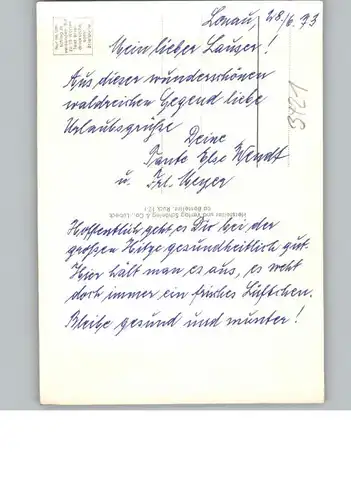 Lonau, 28/6. 73
Mein lieber Lauser!
Aus dieser wunderschönen
waldreichen Gegend liebe
Urlaubsgrüße
Deine
Tante Else Wendt
u. Frl. Meyer
3421
Hersteller und Verlag Schöning & Co., Lübeck
Hoffentlich geht es Dir bei der
großen Hitze gesundheitlich gut.
Hier hält man es aus, es weht
doch immer ein frisches Lüftchen.
Bleibe gesund und munter!